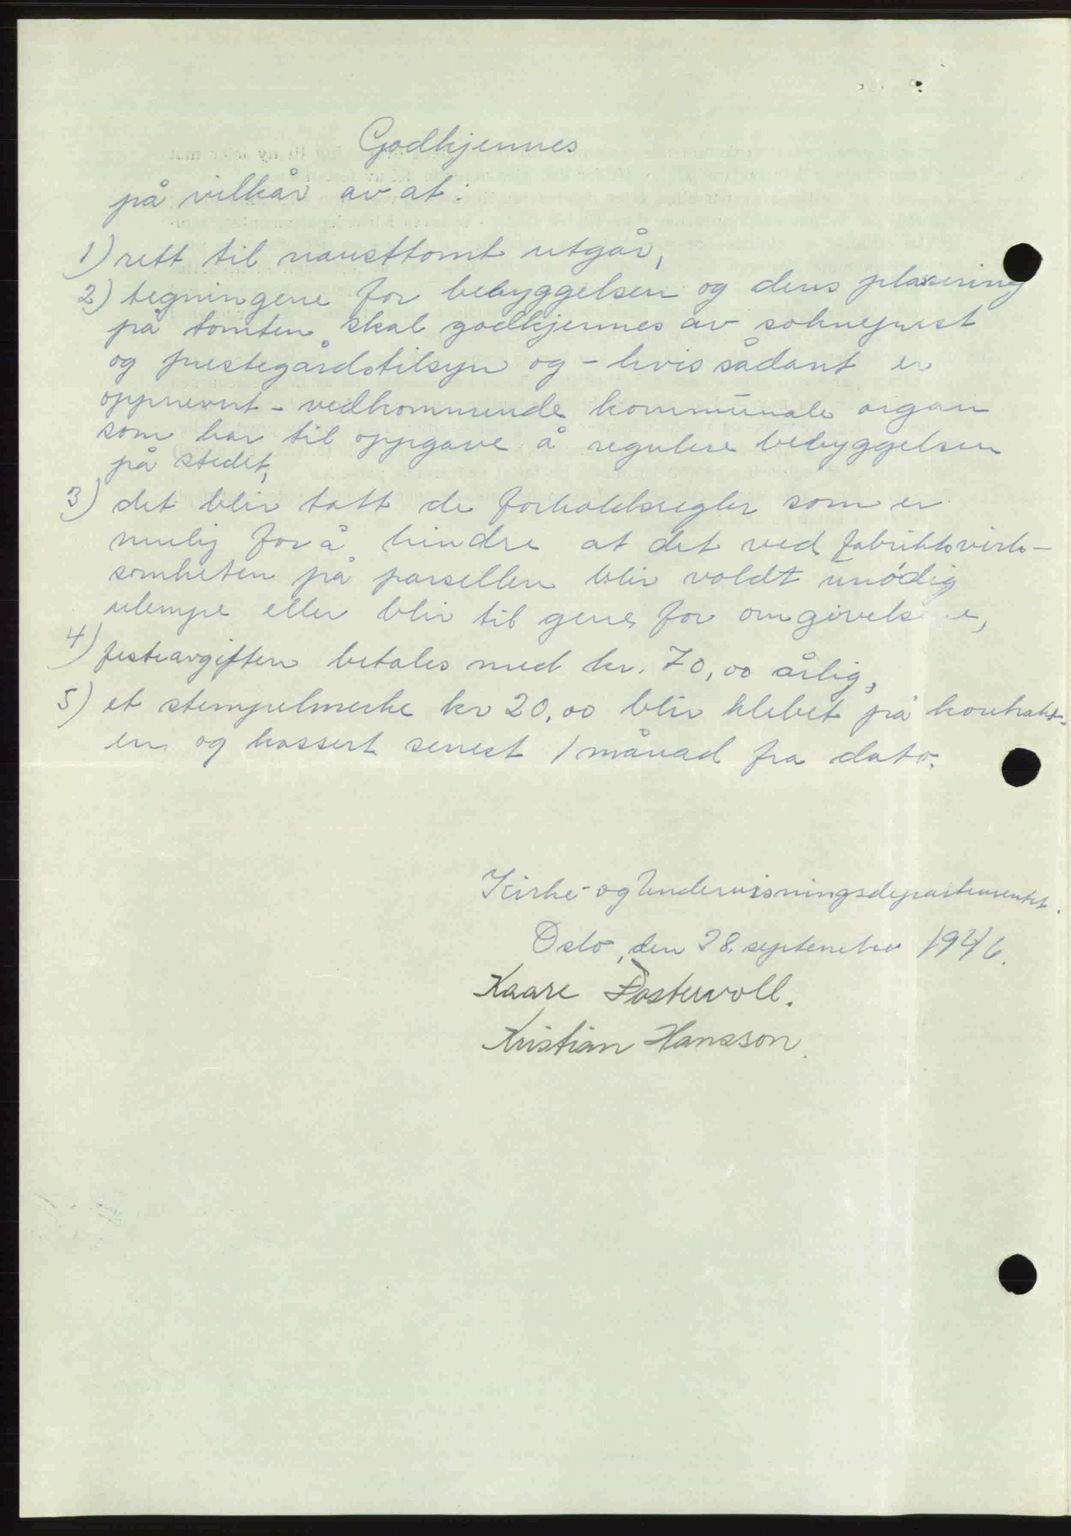 Godkjennes
på vilkår av at:
1) rett til nausttomt utgår,
2) tegningene for bebyggelsen og dens plasering
på tomten skal godkjennes av sokneprest
og prestegårdstilsyn og - hvis sådant er
oppnevnt - vedkommende kommunale organ
som har til oppgave å regulere bebyggelsen
på stedet,
3) det blir tatt de forholdsregler som er
mulig for å hindre at det ved fabrikkvirk-
somheten på parsellen blir voldt unödig
ulempe eller blir til gene for omgivelsene,
4) festeavgiften betales med kr. 70,00 årlig,
5) et stempelmerke kr 20,00 blir klebet på kontrakt-
en og kassert senest 1 månad fra dato.
Kirke- og Undervisningsdepartementet.
Oslo, den 28. september 1946.
Kaare Fostervoll.
Kristian Hansson.